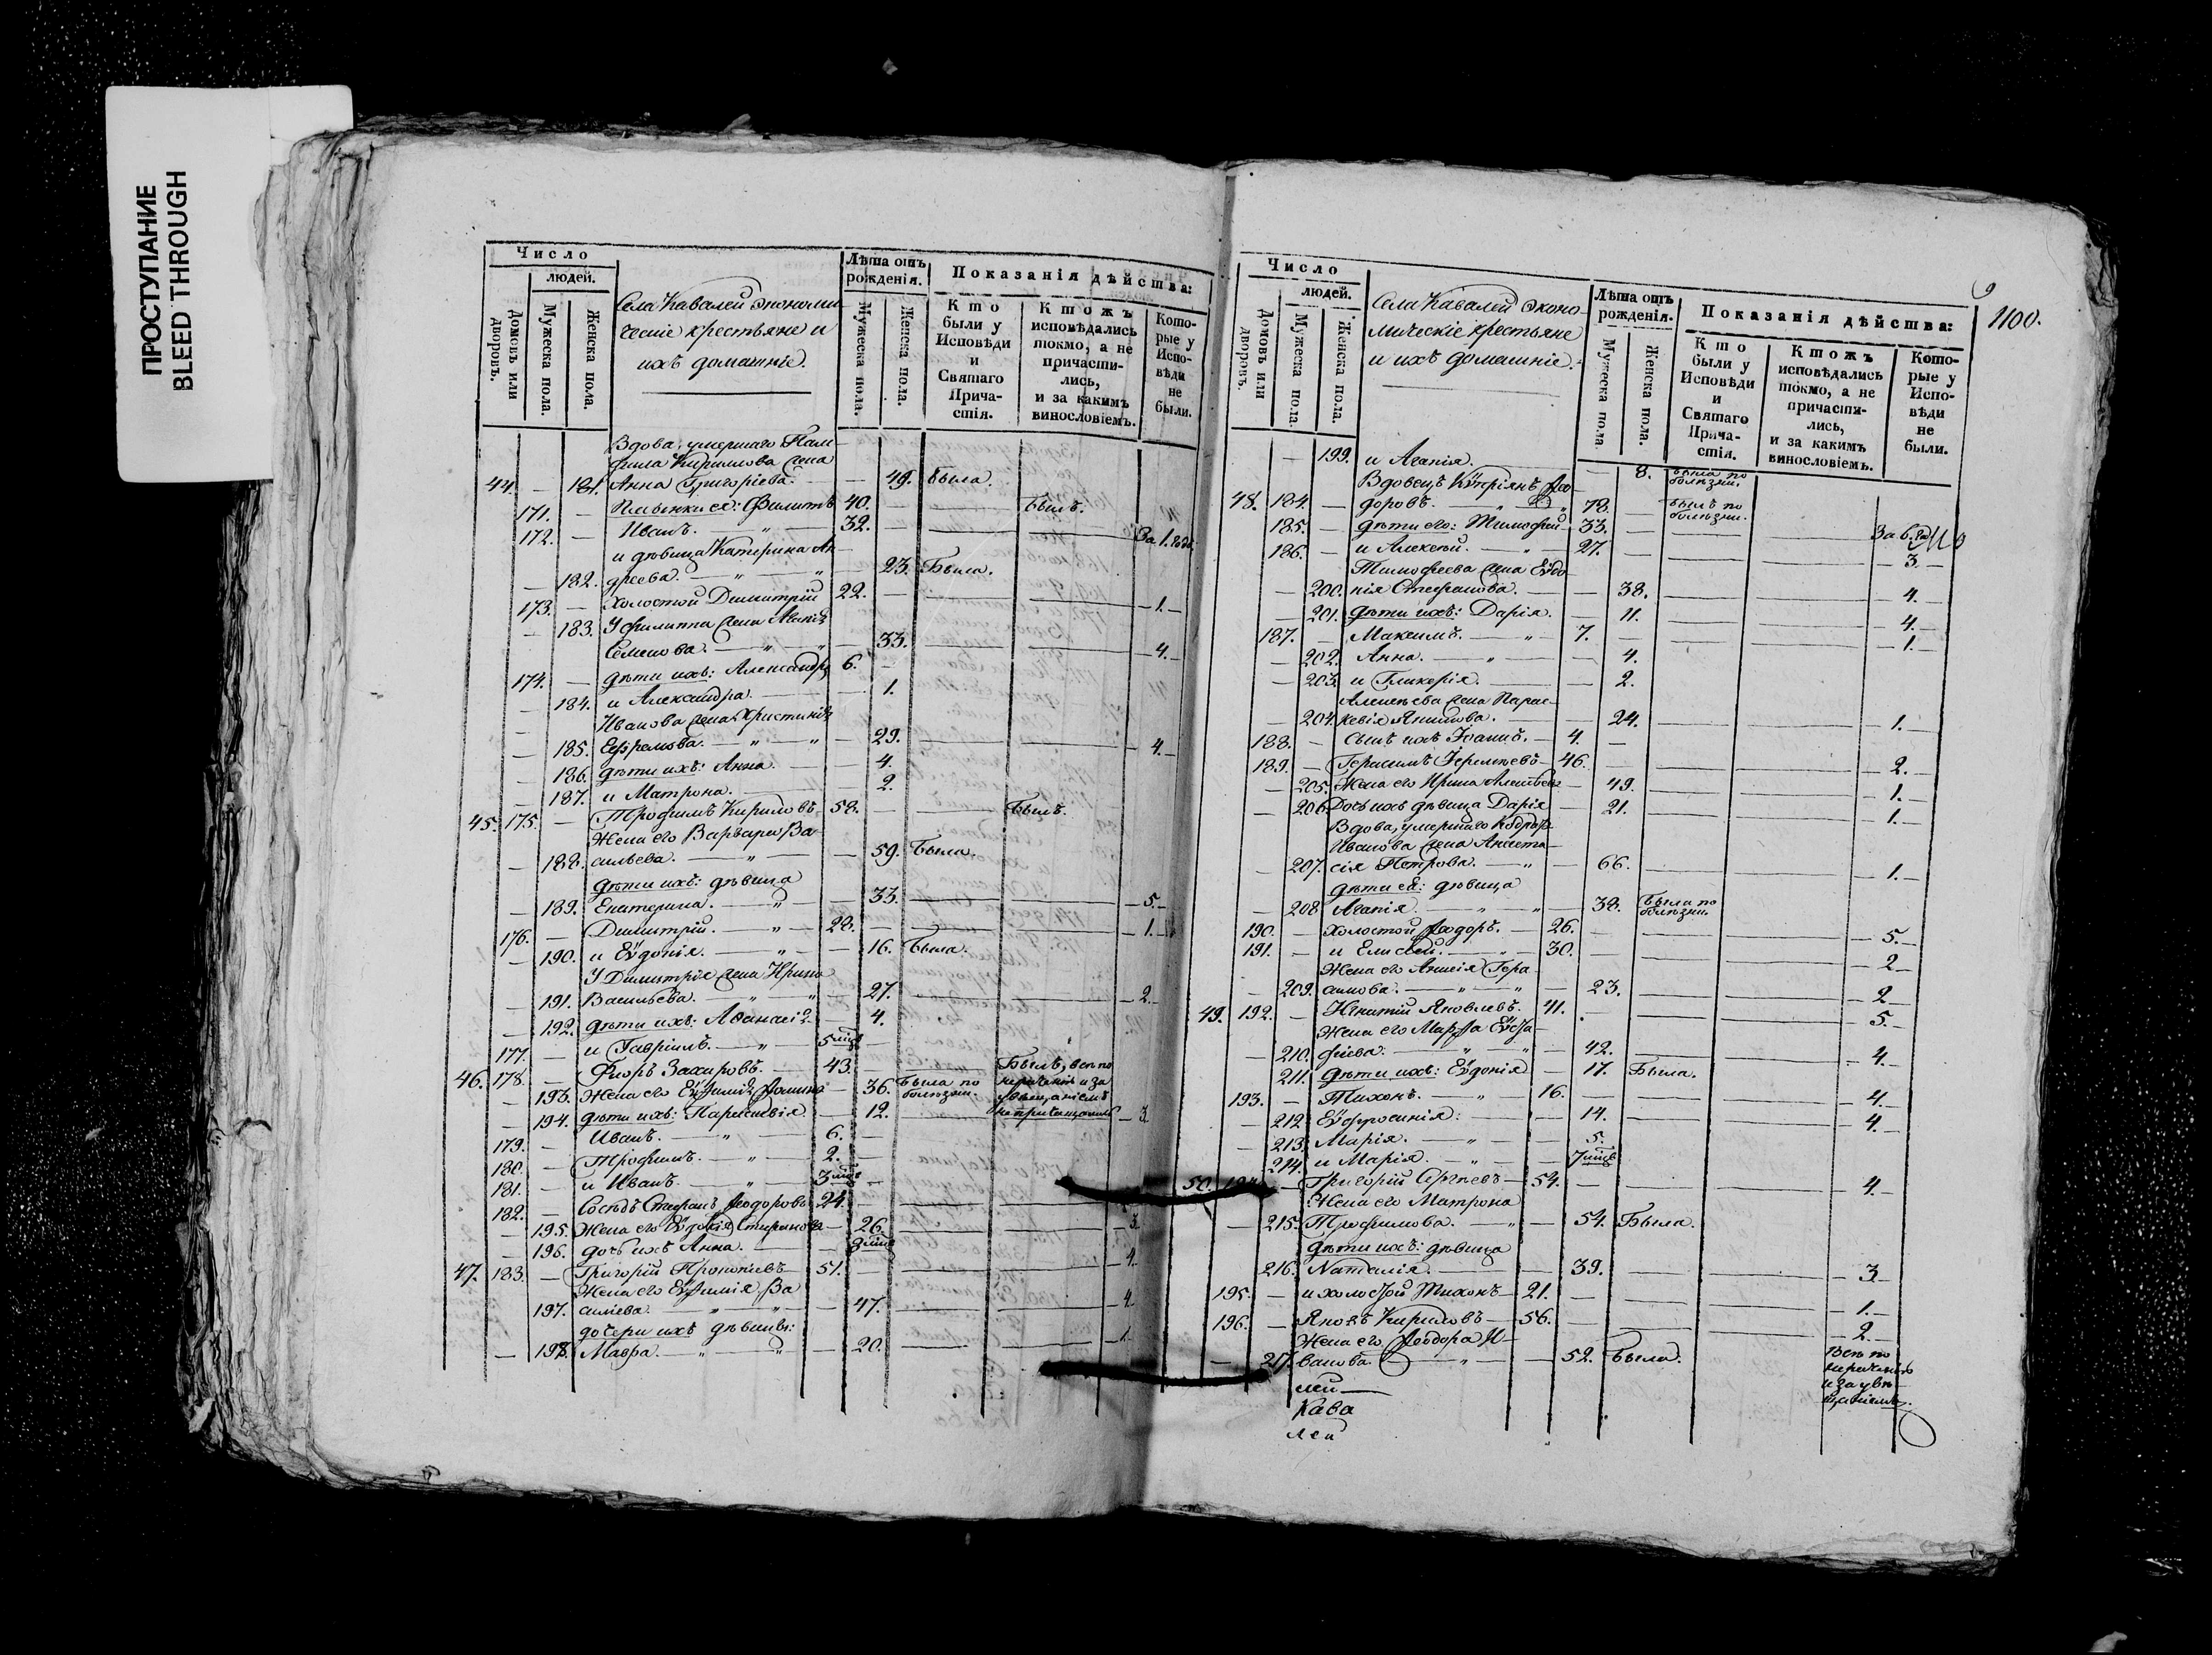 ПРОСТУПАНИЕ
BLEED THROUGH
Число
людей.
Домовъ или дворовъ.
Мужеска пола.
Женска пола.
Села Кавалей экономи-
ческіе крестьяне и
ихъ домашніе.
Лѣта отъ рожденія.
Мужеска пола.
Женска пола.
Показанія дѣйства:
Кто были у Исповѣди и Святаго Прича-стія.
Ктожъ исповѣдались токмо, а не причасти-лись, и за какимъ винословіемъ.
Кото-рые у Испо-вѣди не были.
Вдова, умершаго
Кирилова жена
44. — 181. Анна Григорьева. — 49. Была.
171. — Филиппъ 40. — Былъ.
172. — Иванъ. — " — 32. — За 1. годъ
и дѣвица Катерина Ан-
— 182. дреева. — " — " — 23. Была.
173. — Холостой Димитрій 22. — 1.
— 183. У Филиппа жена
Семенова. — " — " — 33. — 4.
174. — дѣти ихъ: Александръ 6. —
— 184. и Александра. — 1.
Иванова жена Христинія
— 185. Ефремова. — " — " — 29. — 4.
— 186. дѣти ихъ: Анна. — 4.
— 187. и Матрона. — 2.
45. 175. — Трофимъ Кириловъ. 58. — Былъ.
Жена его Варвара Ва-
— 188. сильева. — " — 59. Была.
дѣти ихъ: дѣвица
— 189. Екатерина. — " — 33. — 5.
176. — Димитрій. — " — 28. — 1.
— 190. и Евдокія. — " — 16. Была.
У Димитрія жена Ирина
— 191. Васильева. — " — " — 27. — 2.
— 192. дѣти ихъ: — 4.
177. — и Гавріилъ. — " — 5 мцъ
46. 178. — Флоръ Захаровъ. — 43. Былъ, всѣ по
— 193. Жена его — 36. Была по болѣзни. нераченію и за
— 194. дѣти ихъ: Параскевія — 12. — 3.
179. — Иванъ. — " — 6. —
180. — Трофимъ. — " — 2. —
181. — и Иванъ. — " — 3 мцъ —
182. — Сосѣдъ Стефанъ Ѳеодоровъ 24. —
— 195. Жена его — 26. — 3.
— 196. дочь ихъ Анна. —
47. 183. — Григорій Прокопіевъ — 51. — 4.
Жена его Евѳимія Ва-
— 197. силіева. — " — " — 47. — 4.
дочери ихъ дѣвицы:
— 198. Мавра. — " — " — 20. — 1.
9
1100.
Число
людей.
Домовъ или дворовъ.
Мужеска пола.
Женска пола.
Села Кавалей эконо-
мическіе крестьяне
и ихъ домашніе.
Лѣта отъ рожденія.
Мужеска пола.
Женска пола.
Показанія дѣйства:
Кто были у Исповѣди и Святаго Прича-стія.
Ктожъ исповѣдались токмо, а не причасти-лись, и за какимъ винословіемъ.
Кото-рые у Испо-вѣди не были.
— 199. и Агапія. — 8. Была по болѣзни.
Вдовецъ Кипріянъ Ѳео-
48. 184. — доровъ. — " — 78. — Былъ по болѣзни.
185. — дѣти его: Тимофей — 33. —
186. — и Алексѣй. — " — 27. — 3.
Тимофеева жена Евдо-
— 200. кія Стефанова. — 38. — 4.
— 201. дѣти ихъ: Дарія. — 11. — 4.
187. — Максимъ. — " — 7. — 1.
— 202. Анна. — " — 4.
— 203. и Гликерія. — 2.
Алексѣева жена Парас-
— 204. кевія Якимова. — 24. — 1.
188. — сынъ ихъ Іоаннъ. — 4. —
189. — Герасимъ Еремѣевъ — 46. — 2.
— 205. Жена его Ирина — 49. — 1.
— 206. Дочь ихъ дѣвица Дарія — 21. — 1.
Вдова, умершаго
Иванова жена Анаста-
— 207. сія Петрова. — " — 66. — 1.
дѣти ея: дѣвица
— 208. Агапія. — " — " — 38. Была по болѣзни.
190. — Холостой Ѳеодоръ. — 26. — 5.
191. — и Елисей. — " — 30. — 2.
Жена его Анисія Гера-
— 209. симова. — " — " — 23. — 2.
49. 192. — Игнатій Яковлевъ. 41. — 5.
Жена его Марѳа
— 210. фіева. — " — " — 42. — 4.
211. дѣти ихъ: Евдокія — 17. Была.
193. — Тихонъ. — " — 16. — 4.
— 212. Евфросинія. — 14. — 4.
— 213. Марія. — " — 5.
— 214. и Марія. — " — 7 мцъ
50. 194. — Григорій Сергѣевъ — 54. — 4.
Жена его Матрона
— 215. Трофимова. — " — 54. Была.
дѣти ихъ: дѣвица
216. Наталія. — 39. — 3.
195. — и холостой Тихонъ — 21. — 1.
196. — Яковъ Кириловъ — 56. — 2.
Жена его Ѳеодора И-
— 217. ванова. — " — 52. Была. Всѣ по
нераченію
и за увѣ-
щаніемъ.
Кава
лей